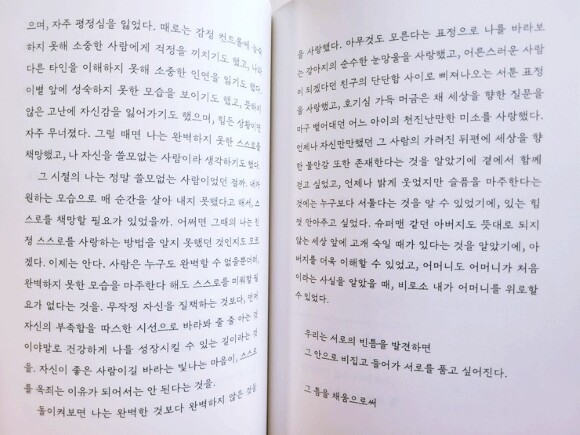 으며, 자주 평정심을 잃었다. 때로는 감정 컨트롤에 능숙
하지 못해 소중한 사람에게 걱정을 끼치기도 했고, 나와
다른 타인을 이해하지 못해 소중한 인연을 잃기도 했다.
이별 앞에 성숙하지 못한 모습을 보이기도 했고, 뜻하지
않은 고난에 자신감을 잃어가기도 했으며, 힘든 상황이면
자주 무너졌다. 그럴 때면 나는 완벽하지 못한 스스로를
책망했고, 나 자신을 쓸모없는 사람이라 생각하기도 했다.
그 시절의 나는 정말 쓸모없는 사람이었던 걸까. 내가
원하는 모습으로 매 순간을 살아 내지 못했다고 해서, 스
스로를 책망할 필요가 있었을까. 어쩌면 그때의 나는 진
정 스스로를 사랑하는 방법을 알지 못했던 것인지도 모르
겠다. 이제는 안다. 사람은 누구도 완벽할 수 없을뿐더러,
완벽하지 못한 모습을 마주한다 해도 스스로를 미워할 필
요가 없다는 것을. 무작정 자신을 질책하는 것보다, 먼저
자신의 부족함을 따스한 시선으로 바라봐 줄 줄 아는 것
이야말로 건강하게 나를 성장시킬 수 있는 길이라는 것
을. 자신이 좋은 사람이길 바라는 빛나는 마음이, 스스로
를 옥죄는 이유가 되어서는 안 된다는 것을.
돌이켜보면 나는 완벽한 것보다 완벽하지 않은 것을
을 사랑했다. 아무것도 모른다는 표정으로 나를 바라보
는 강아지의 순수한 눈망울을 사랑했고, 어른스러운 사람
이 되겠다던 친구의 단단함 사이로 삐져나오는 서툰 표정
을 사랑했고, 호기심 가득 머금은 채 세상을 향한 질문을
마구 뱉어대던 어느 아이의 천진난만한 미소를 사랑했다.
언제나 자신만만했던 그 사람의 가려진 뒤편에 세상을 향
한 불안감 또한 존재한다는 것을 알았기에 곁에서 함께
걷고 싶었고, 언제나 밝게 웃었지만 슬픔을 마주한다는
것에는 누구보다 서툴다는 것을 알 수 있었기에, 있는 힘
껏 안아주고 싶었다. 슈퍼맨 같던 아버지도 뜻대로 되지
않는 세상 앞에 고개 숙일 때가 있다는 것을 알았기에, 아
버지를 더욱 이해할 수 있었고, 어머니도 어머니가 처음
이라는 사실을 알았을 때, 비로소 내가 어머니를 위로할
수 있었다.
우리는 서로의 빈틈을 발견하면
그 안으로 비집고 들어가 서로를 품고 싶어진다.
그 틈을 채움으로써